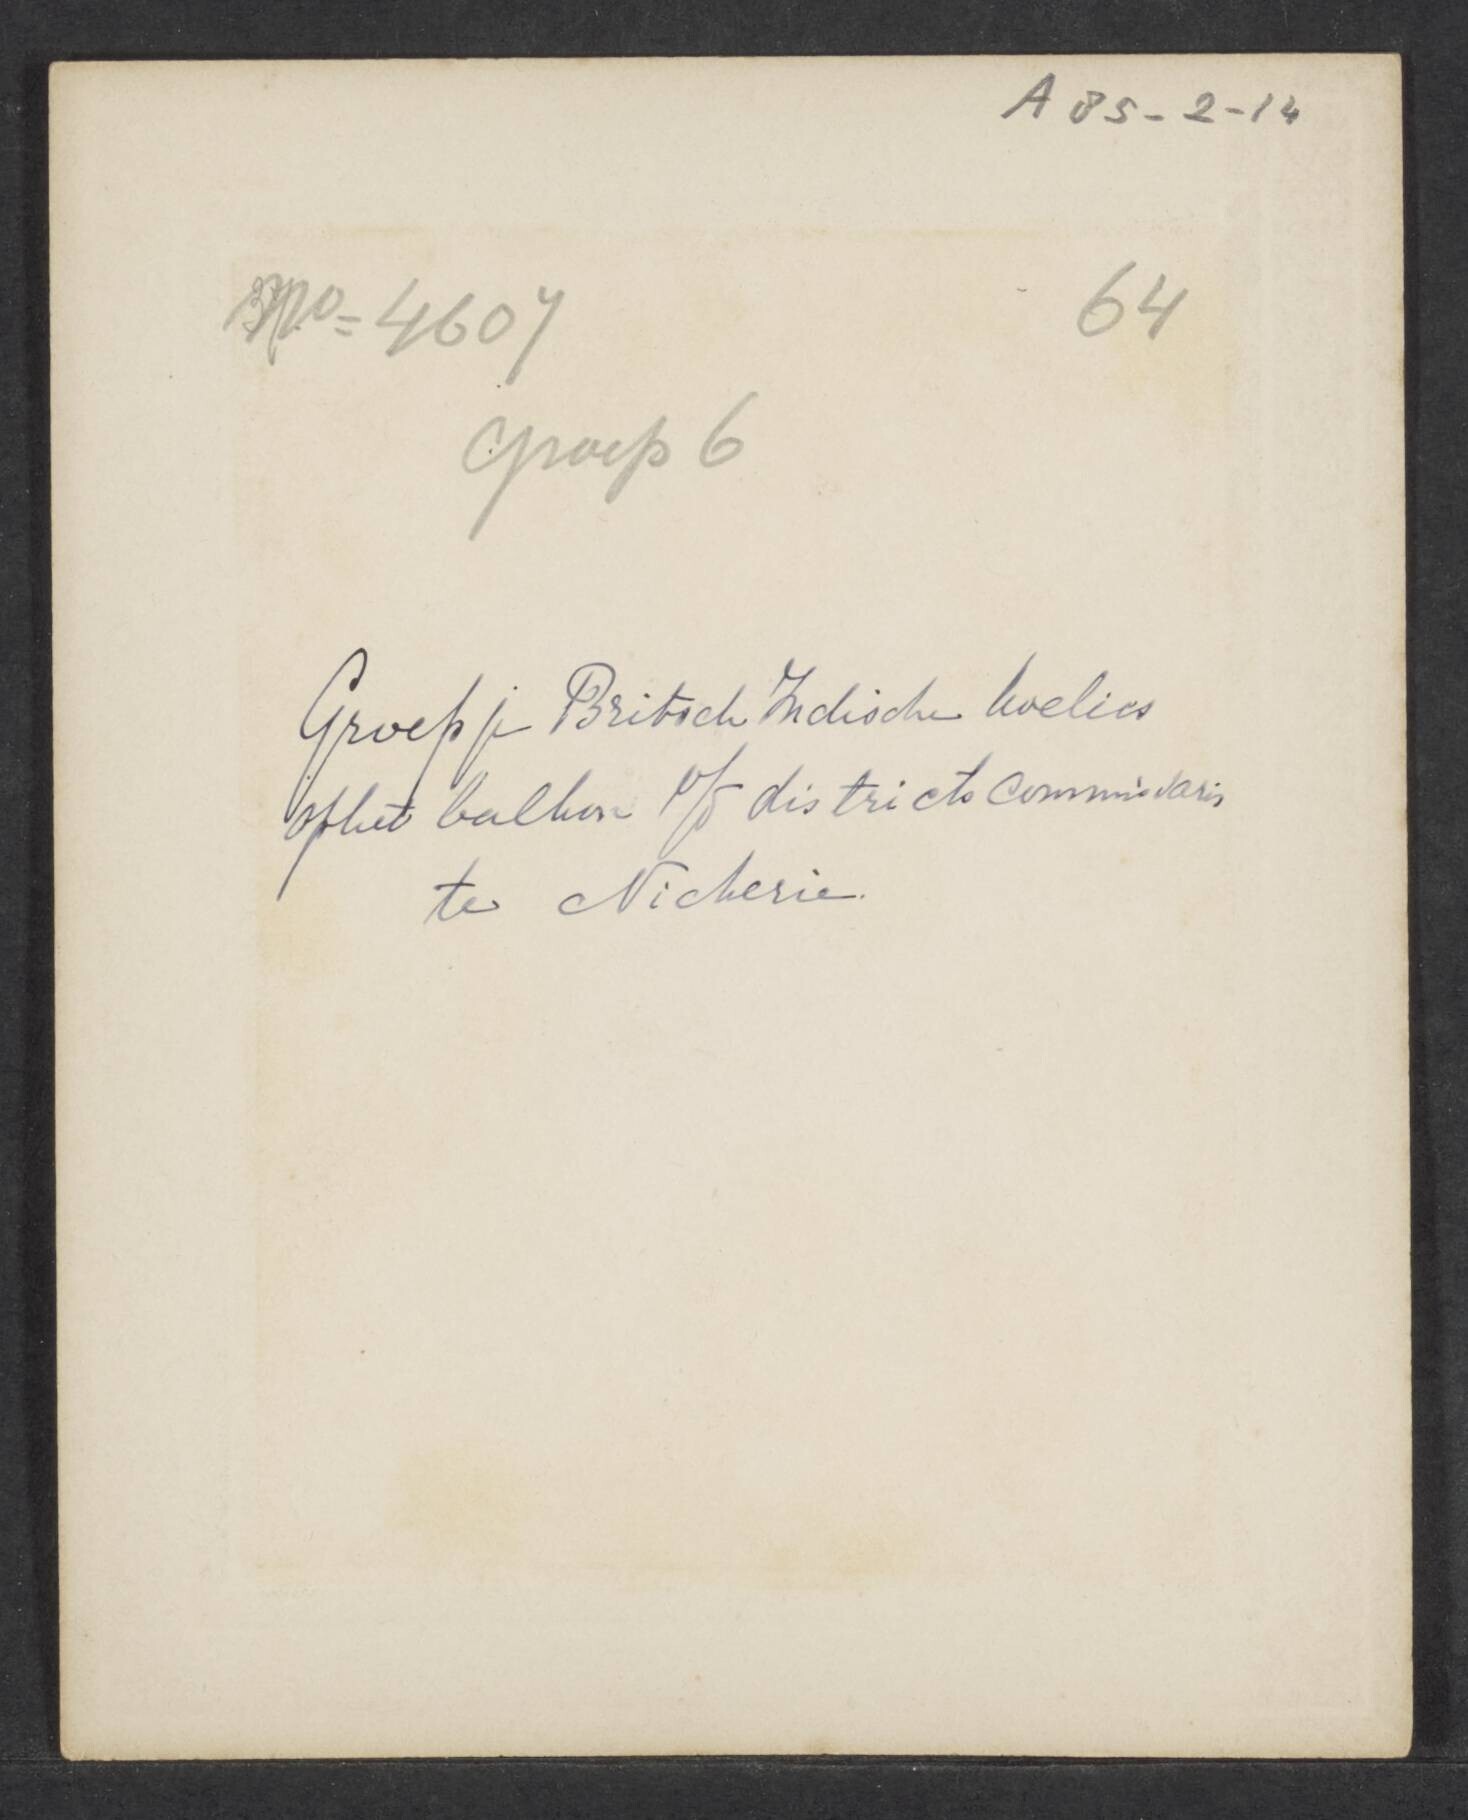 A 85-2-14
No= 4607
64
Groep 6
Groepje Britsch Indische koelies
op het balkon v/d districts commissaris
te Nickerie.